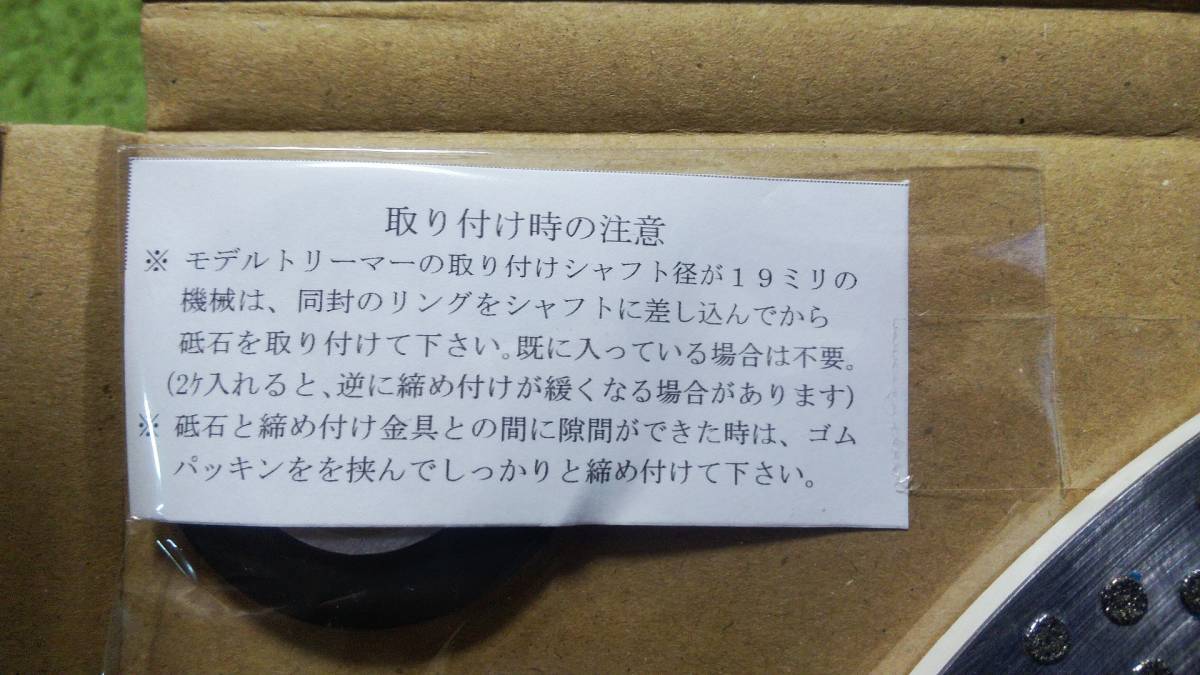 取り付け時の注意
※ モデルトリーマーの取り付けシャフト径が１９ミリの
機械は、同封のリングをシャフトに差し込んでから
砥石を取り付けて下さい。既に入っている場合は不要。
(2ｹ入れると、逆に締め付けが緩くなる場合があります)
※ 砥石と締め付け金具との間に隙間ができた時は、ゴム
パッキンをを挟んでしっかりと締め付けて下さい。